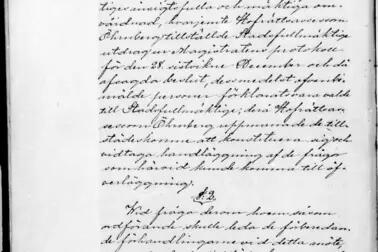 tiges insigtsfulle och mäktige om-
vårdnad, hvarjemte Hofrättsassessor
Öhmberg tillställde Stadsfullmäktige
utdrag ur Magistratens protokoll
för den 28. sistvikne December och då
afsagda beslut, desmedelst ofvanbe-
mälde personer förklarats vara valde
till Stadsfullmäktige; derå Hofrättsas-
sessor Öhmberg uppmanade de till-
städeskomne att konstituera sig och
vidtaga handläggning af de frågor
som härvid kunde komma till öf-
verläggning.
§. 2.
Vid fråga derom hvem såsom
ordförande skulle leda de förberedan-
de förhandlingarne vid detta möte,